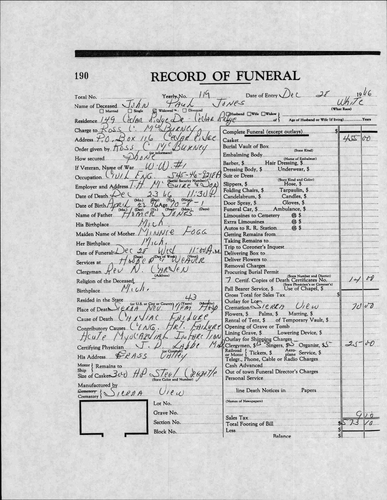 190 RECORD OF FUNERAL
Total No. Yearly No. 119 Date of Entry Dec 28 1966
Name of Deceased John Paul Jones White
Married Single Widowed Divorced (What Race)
Residence 149 Cedar Ridge Dr Cedar Ridge
Husband Wife Widow of Age of Husband or Wife (if living) Years
Charge to Ross C McBurney
Address P.O. Box 116 Cedar Ridge
Order given by Ross C McBurney
How secured Phone
If Veteran, Name of War W.W. #1
Occupation Civil Eng.
(Social Security Number)
Employer and Address
Date of Death Dec 23 66 11:30
Date of Birth April Age 70
Name of Father Homer Jones
His Birthplace Mich.
Maiden Name of Mother Minnie Fogg
Her Birthplace Mich.
Date of Funeral Dec 28 Wed 11:00 A.M.
Services at Hooper & Weaver
Clergyman Rev N.
Religion of the Deceased
Birthplace Mich.
Resided in the State 43
Place of Death
Cause of Death Cardiac Failure
Contributory Causes Cong. Hrt. Failure
Acute Myocardial Infarction
Certifying Physician
His Address Grass Valley
Motor Ship Remains to
Size of Casket
(State Color and Number)
Manufactured by
Cemetery Crematory Sierra View
Lot No.
Grave No.
Section No.
Block No.
Complete Funeral (except outlays) $ 455.00
Casket
Burial Vault or Box
(State Kind)
Embalming Body
(Name of Embalmer)
Barber, $ Hair Dressing, $
Dressing Body, $ Underwear, $
Suit or Dress
(State Kind and Color)
Slippers, $ Hose, $
Folding Chairs, $ Tarpaulin, $
Candelabrum, $ Candles, $
Door Spray, $ Gloves, $
Funeral Car, $ Ambulance, $
Limousines to Cemetery @ $
Extra Limousines @ $
Autos to R. R. Station @ $
Getting Remains from
Taking Remains to
Trip to Coroner's Inquest
Delivering Box to
Deliver Flowers to
Removal Charges
Procuring Burial Permit
(State Number and District)
7 Certif. Copies of Death Certificates No. 14 14
(State Distance or Grantee's)
Gross Total for Sales Tax $
Outlay for Lot
Cremation Sierra View 70 00
Flowers, $ Palms, $ Matting, $
Rental of Tent, $ of Temporary Vault, $
Opening of Grave or Tomb
Lining Grave, $ Lowering Device, $
Outlay for Shipping Charges
Clergyman, $ Singers, $ Organist, $ 25 00
Railroad or Motor Tickets, $ Aero plane Service, $
Telegr., Phone, Cable or Radio Charges
Cash Advanced
Out of town Funeral Director's Charges
Personal Service
line Death Notices in Papers
(Names of Newspapers)
Sales Tax 9 10
Total Footing of Bill $ 573 10
Less $
Balance $